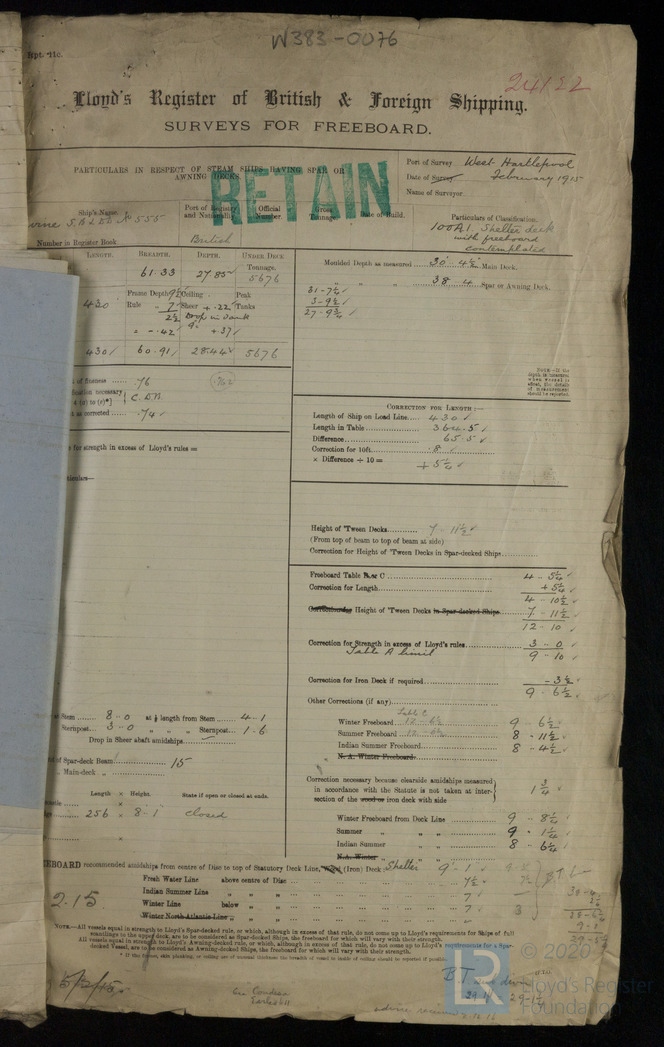 W383-0076
Rpt. 11c.
24122
Lloyd's Register of British & Foreign Shipping.
SURVEYS FOR FREEBOARD.
PARTICULARS IN RESPECT OF STEAM SHIPS HAVING SPAR OR
AWNING DECKS
RETAIN
Port of Survey West Hartlepool
Date of Survey February 1915
Name of Surveyor
Ship's Name.
Port of Registry and Nationality.
Official Number.
Gross Tonnage.
Date of Build.
Particulars of Classification.
No 555
British
100A1 Shelter deck
with freeboard
contemplated
Number in Register Book
LENGTH. BREADTH. DEPTH. UNDER DECK Tonnage.
61.33 27.85 5676
430
Frame Depth 9½ Ceiling Peak
Rule - 7 Sheer + .22 Tanks
2½ Drop in Tank
= - .42 + .37
430 60.91 28.44 5676
Moulded Depth as measured 30 - 4½ Main Deck.
" " " 38 4 Spar or Awning Deck.
31-7½
3-9½
27-9¾
of fineness .76
C.DB
as corrected .74
for strength in excess of Lloyd's rules =
CORRECTION FOR LENGTH:—
Length of Ship on Load Line 430
Length in Table 364.5
Difference 65.5
Correction for 10ft. .8
× Difference ÷ 10 = + 5¼
Height of 'Tween Decks 7 - 11½
(From top of beam to top of beam at side)
Correction for Height of 'Tween Decks in Spar-decked Ships
Freeboard Table B or C 4 - 5¼
Correction for Length + 5¼
4 - 10½
Correction for Height of 'Tween Decks in Spar-decked Ships 7 - 11½
12 - 10
Correction for Strength in excess of Lloyd's rules 3 - 0
Table A limit 9 - 10
Correction for Iron Deck if required - 3½
9 - 6½
Other Corrections (if any)
Table C
Winter Freeboard 9 - 6½
Summer Freeboard 8 - 11½
Indian Summer Freeboard 8 - 4½
N. A. Winter Freeboard
Stem 8-0 at ⅛ length from Stem 4-1
Sternpost 3-0 " " " Sternpost 1-6
Drop in Sheer abaft amidships
of Spar-deck Beam 15
Main-deck "
Length × Height. State if open or closed at ends.
256 × 8-1 closed
Correction necessary because clearside amidships measured
in accordance with the Statute is not taken at inter-
section of the wood or iron deck with side
1¾
Winter Freeboard from Deck Line 9 - 8¼
Summer " " " 9 - 1¼
Indian Summer " " 8 - 6¼
N.A. Winter " "
FREEBOARD recommended amidships from centre of Disc to top of Statutory Deck Line, Wood (Iron) Deck: Shelter 9 - 1
Fresh Water Line above centre of Disc 7½
Indian Summer Line " " 7
Winter Line below " 7
Winter North Atlantic Line " "
2.15
NOTE—All vessels equal in strength to Lloyd's Spar-decked rule, or which, although in excess of that rule, do not come up to Lloyd's requirements for Ships of full
scantlings to the upper deck, are to be considered as Spar-decked Ships, the freeboard for which will vary with their strength.
All vessels equal in strength to Lloyd's Awning-deck rule, or which, although in excess of that rule, do not come up to Lloyd's requirements for a Spar-
decked Vessel, are to be considered as Awning-decked Ships, the freeboard for which will vary with their strength.
5/2/15
© 2020
LR
Lloyd's Register
Foundation